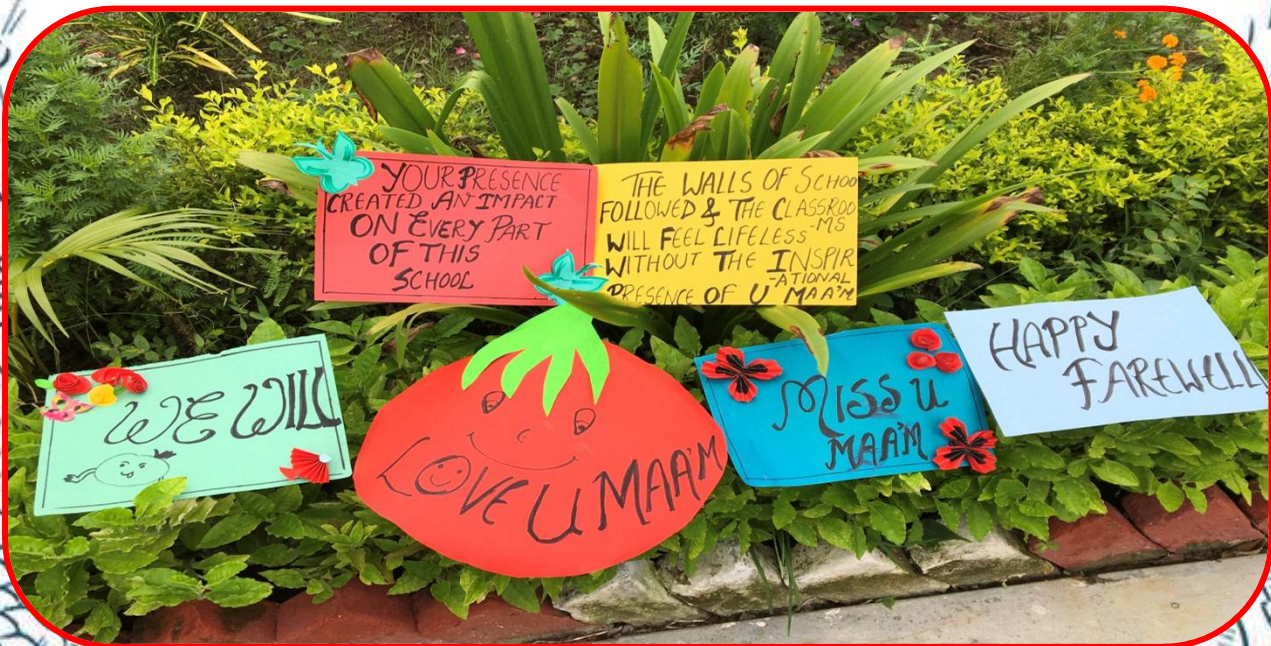 YOUR PRESENCE
CREATED AN IMPACT
ON EVERY PART
OF THIS
SCHOOL
THE WALLS OF SCHOO
FOLLOWED & THE CLASSROO
-MS
WILL FEEL LIFELESS
WITHOUT THE INSPIR
-ATIONAL
PRESENCE OF U MAA'M
WE WILL
LOVE U MAA'M
MISS U
MAA'M
HAPPY
FAREWELL